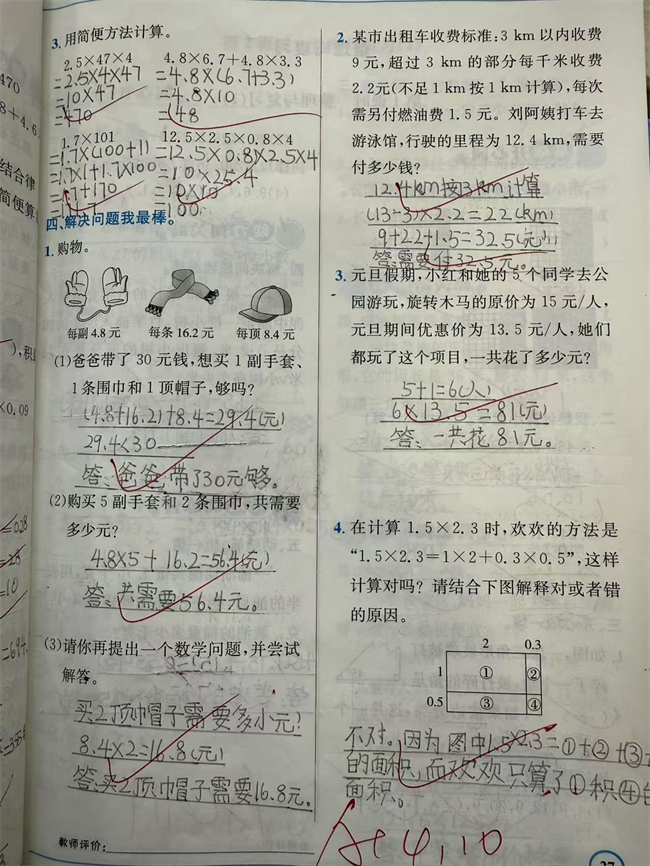 470
8+4.6
结合律
简便算
×0.09
3. 用简便方法计算。
2.5×47×4
=2.5×4×47
=10×47
=470
4.8×6.7+4.8×3.3
=4.8×(6.7+3.3)
=4.8×10
=48
1.7×101
=1.7×(100+1)
=1.7×1+1.7×100
=1.7+170
12.5×2.5×0.8×4
=12.5×0.8×2.5×4
=10×25.4
=10×10
=100
四、解决问题我最棒。
1. 购物。
每副 4.8 元 每条 16.2 元 每顶 8.4 元
(1)爸爸带了 30 元钱，想买 1 副手套、
1 条围巾和 1 顶帽子，够吗？
(4.8+16.2)+8.4=29.4(元)
29.4<30
答：爸爸带了30元够。
(2)购买 5 副手套和 2 条围巾，共需要
多少元？
4.8×5+16.2=56.4(元)
答：共需要56.4元。
(3)请你再提出一个数学问题，并尝试
解答。
买2顶帽子需要多少元？
8.4×2=16.8(元)
答：买2顶帽子需要16.8元。
教师评价：
2. 某市出租车收费标准：3 km 以内收费
9 元，超过 3 km 的部分每千米收费
2.2元(不足 1 km 按 1 km 计算)，每次
需另付燃油费 1.5 元。刘阿姨打车去
游泳馆，行驶的里程为 12.4 km，需要
付多少钱？
12.4km按13km计算
(13-3)×2.2=22(km)
9+22+1.5=32.5(元)
答：需要付32.5元。
3. 元旦假期，小红和她的 5 个同学去公
园游玩，旋转木马的原价为 15 元/人，
元旦期间优惠价为 13.5 元/人，她们
都玩了这个项目，一共花了多少元？
5+1=6(人)
6×13.5=81(元)
答：一共花81元。
4. 在计算 1.5×2.3 时，欢欢的方法是
“1.5×2.3=1×2+0.3×0.5”，这样
计算对吗？请结合下图解释对或者错
的原因。
2 0.3
1 ① ②
0.5 ③ ④
不对。因为图中1.5×2.3=①+②+③
的面积，而欢欢只算了①积④
面积。
A+ 4,10
27